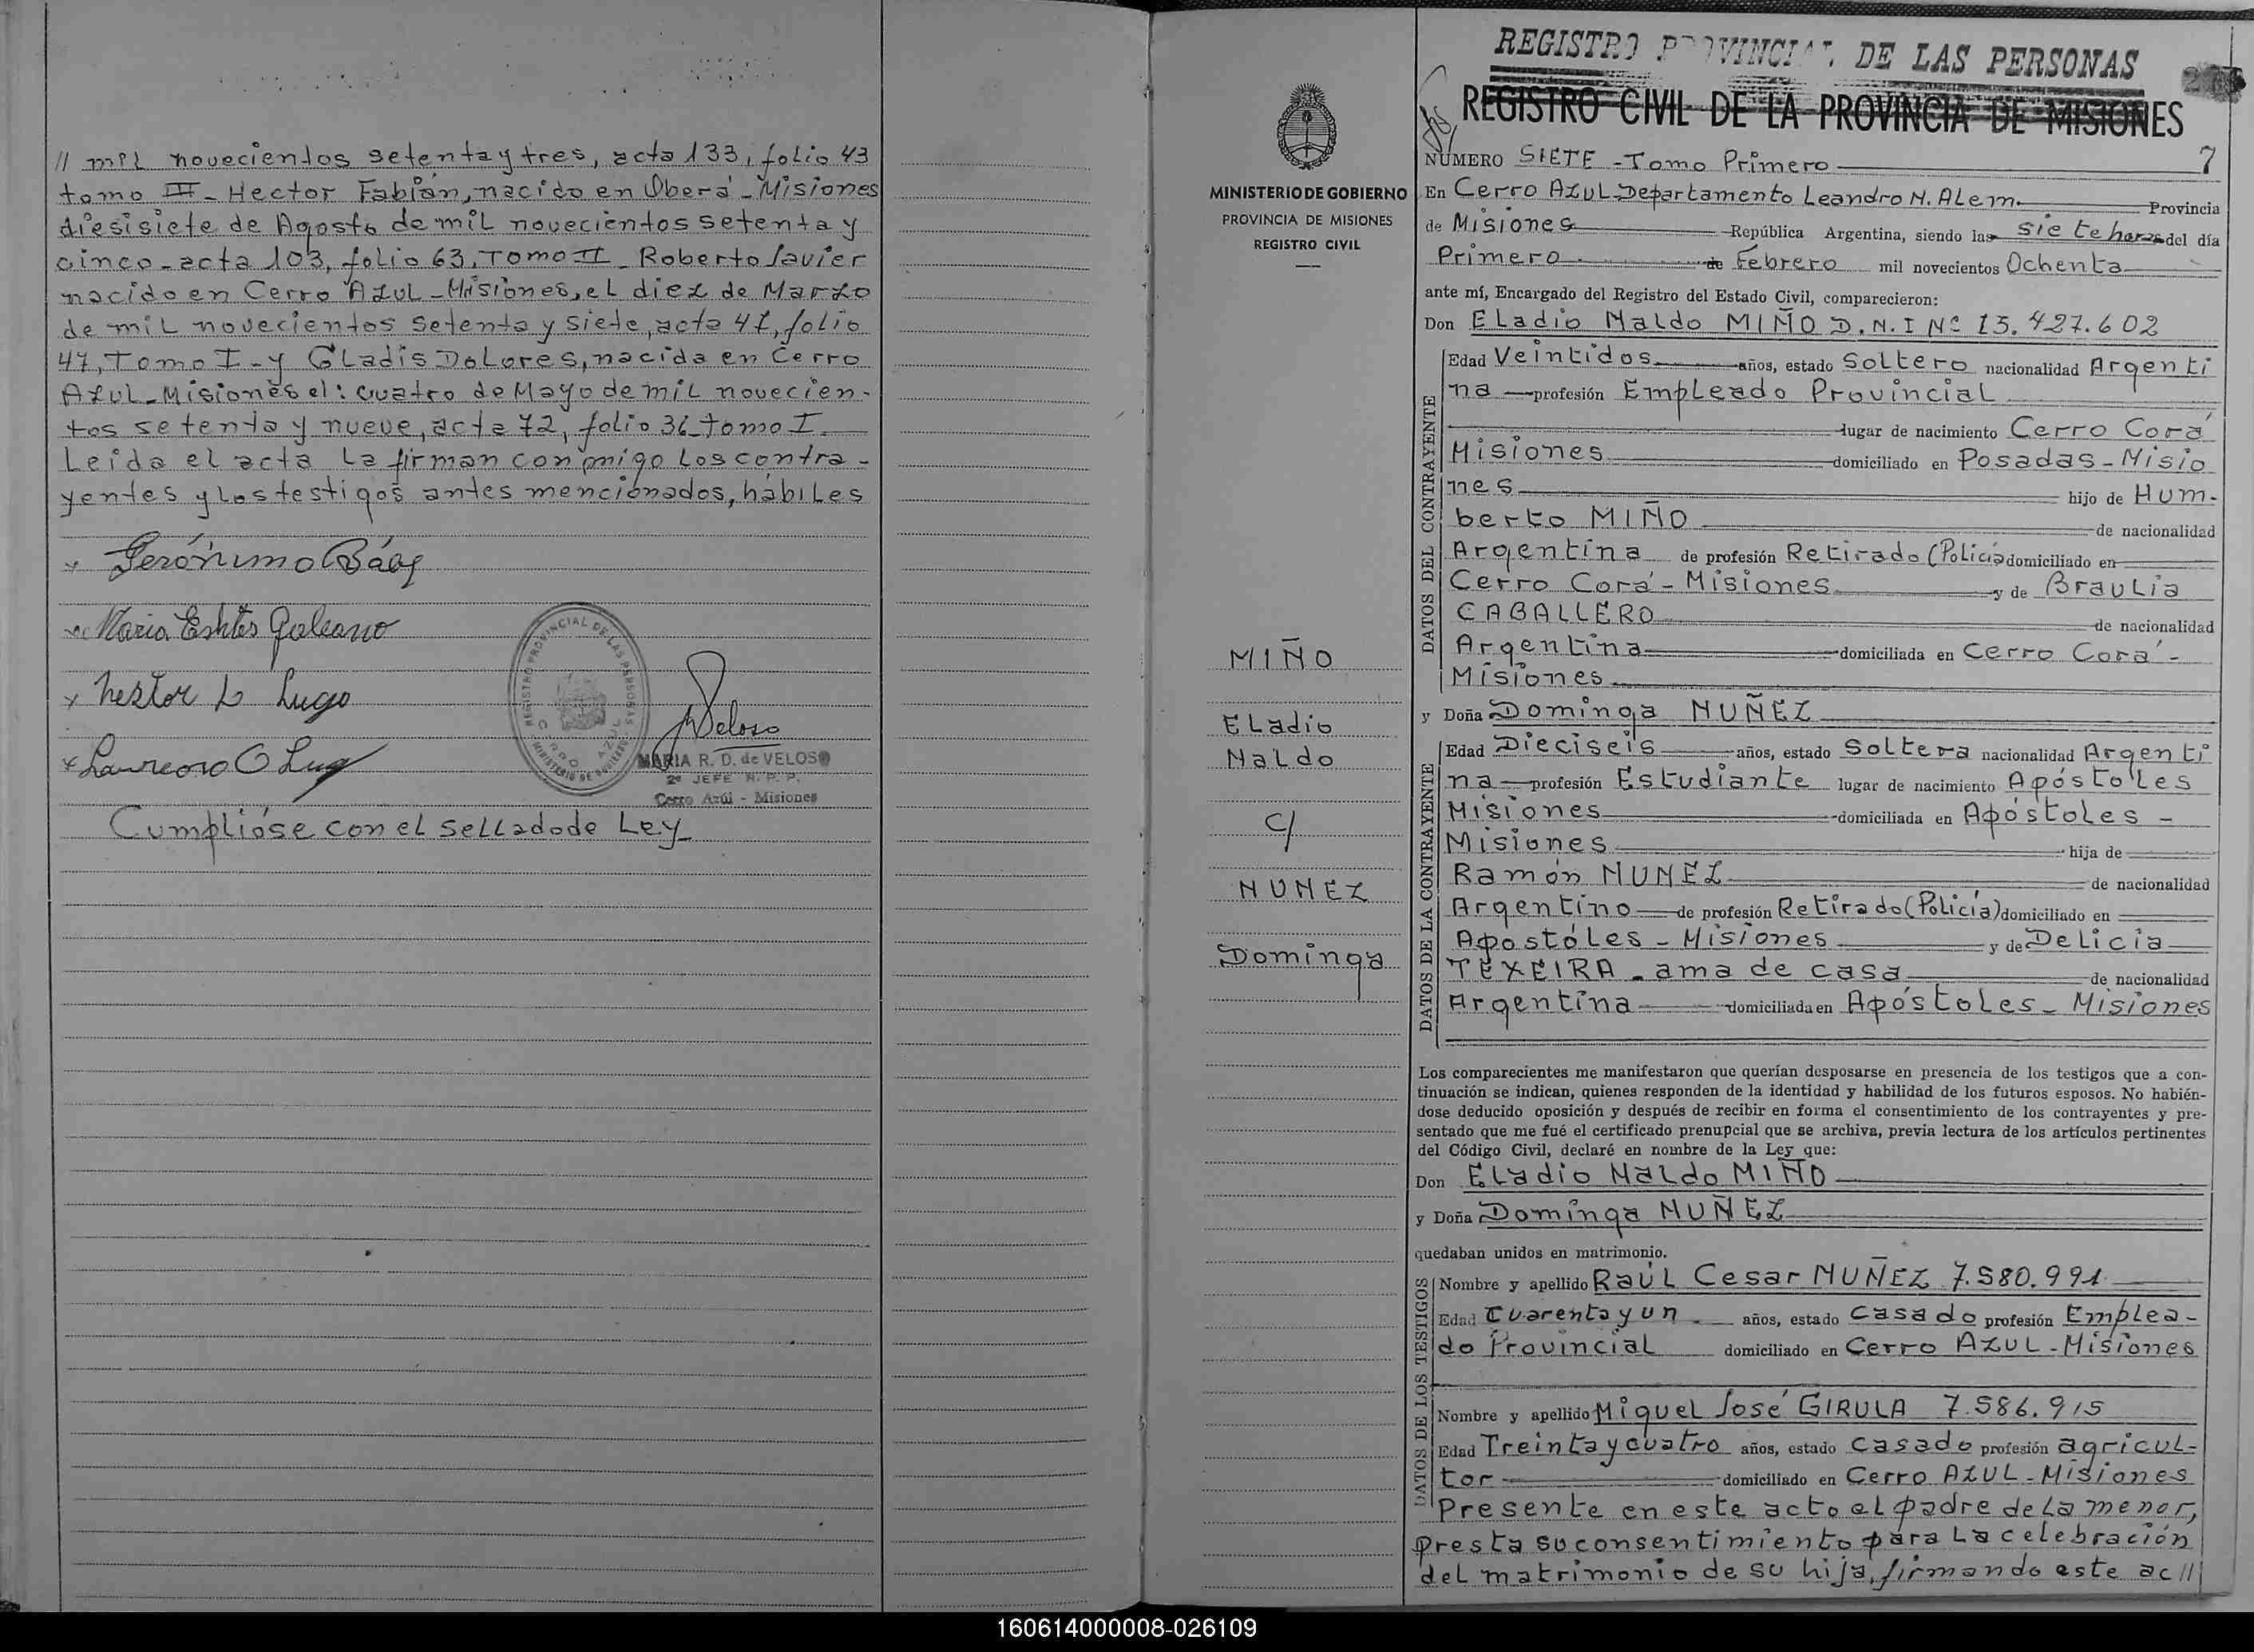 // mil novecientos setenta y tres, acta 133, folio 43
tomo III - Hector Fabián, nacido en Oberá - Misiones
diesisiete de Agosto de mil novecientos setenta y
cinco - acta 103, folio 63, Tomo II - Roberto Javier
nacido en Cerro Azul - Misiones, el diez de Marzo
de mil novecientos setenta y siete, acta 47, folio
47, Tomo I - y Gladis Dolores, nacida en Cerro
Azul - Misiones el: cuatro de Mayo de mil novecien-
tos setenta y nueve, acta 72, folio 36 - tomo I.
Leida el acta la firman con migo los contra-
yentes y los testigos antes mencionados, hábiles
x Gerónimo Báez
Maria Galeano
x Nestor L Lugo
x Laureano O Lugo
REGISTRO PROVINCIAL DE LAS PERSONAS
CERRO AZUL
MINISTERIO DE GOBIERNO
Veloso
MARIA R. D. de VELOSO
2º JEFE R. P. P.
Cerro Azúl - Misiones
Cumplióse con el sellado de Ley
MINISTERIO DE GOBIERNO
PROVINCIA DE MISIONES
REGISTRO CIVIL
MIÑO
Eladio
Naldo
c/
NUNEZ
Dominga
REGISTRO PROVINCIAL DE LAS PERSONAS
REGISTRO CIVIL DE LA PROVINCIA DE MISIONES
NÚMERO SIETE - Tomo Primero 7
En Cerro Azul Departamento Leandro N. Alem. Provincia
de Misiones República Argentina, siendo las siete horas del día
Primero de Febrero mil novecientos Ochenta
ante mí, Encargado del Registro del Estado Civil, comparecieron:
Don Eladio Naldo MIÑO D.N.I Nº 13.427.602
DATOS DEL CONTRAYENTE
Edad Veintidos años, estado Soltero nacionalidad Argenti
na profesión Empleado Provincial
lugar de nacimiento Cerro Corá
Misiones domiciliado en Posadas - Misio
nes hijo de Hum-
berto MIÑO de nacionalidad
Argentina de profesión Retirado (Policia domiciliado en
Cerro Corá - Misiones y de Braulia
CABALLERO de nacionalidad
Argentina domiciliada en Cerro Corá -
Misiones
y Doña Dominga NUÑEZ
DATOS DE LA CONTRAYENTE
Edad Dieciseis años, estado Soltera nacionalidad Argenti
na profesión Estudiante lugar de nacimiento Apóstoles
Misiones domiciliada en Apóstoles -
Misiones hija de
Ramón NUNEZ de nacionalidad
Argentino de profesión Retirado (Policía) domiciliado en
Apostóles - Misiones y de Delicia
TEXEIRA - ama de casa de nacionalidad
Argentina domiciliada en Apóstoles - Misiones
Los comparecientes me manifestaron que querían desposarse en presencia de los testigos que a con-
tinuación se indican, quienes responden de la identidad y habilidad de los futuros esposos. No habién-
dose deducido oposición y después de recibir en forma el consentimiento de los contrayentes y pre-
sentado que me fué el certificado prenupcial que se archiva, previa lectura de los artículos pertinentes
del Código Civil, declaré en nombre de la Ley que:
Don Eladio Naldo MIÑO
y Doña Dominga NUÑEZ
quedaban unidos en matrimonio.
DATOS DE LOS TESTIGOS
Nombre y apellido Raúl Cesar NUÑEZ 7.580.991
Edad Cuarenta y un años, estado Casado profesión Emplea-
do Provincial domiciliado en Cerro Azul - Misiones
Nombre y apellido Miguel José GIRULA 7.586.915
Edad Treinta y cuatro años, estado casado profesión agricul-
tor domiciliado en Cerro Azul - Misiones
Presente en este acto el padre de la menor,
presta su consentimiento para la celebración
del matrimonio de su hija, firmando este ac//
160614000008-026109